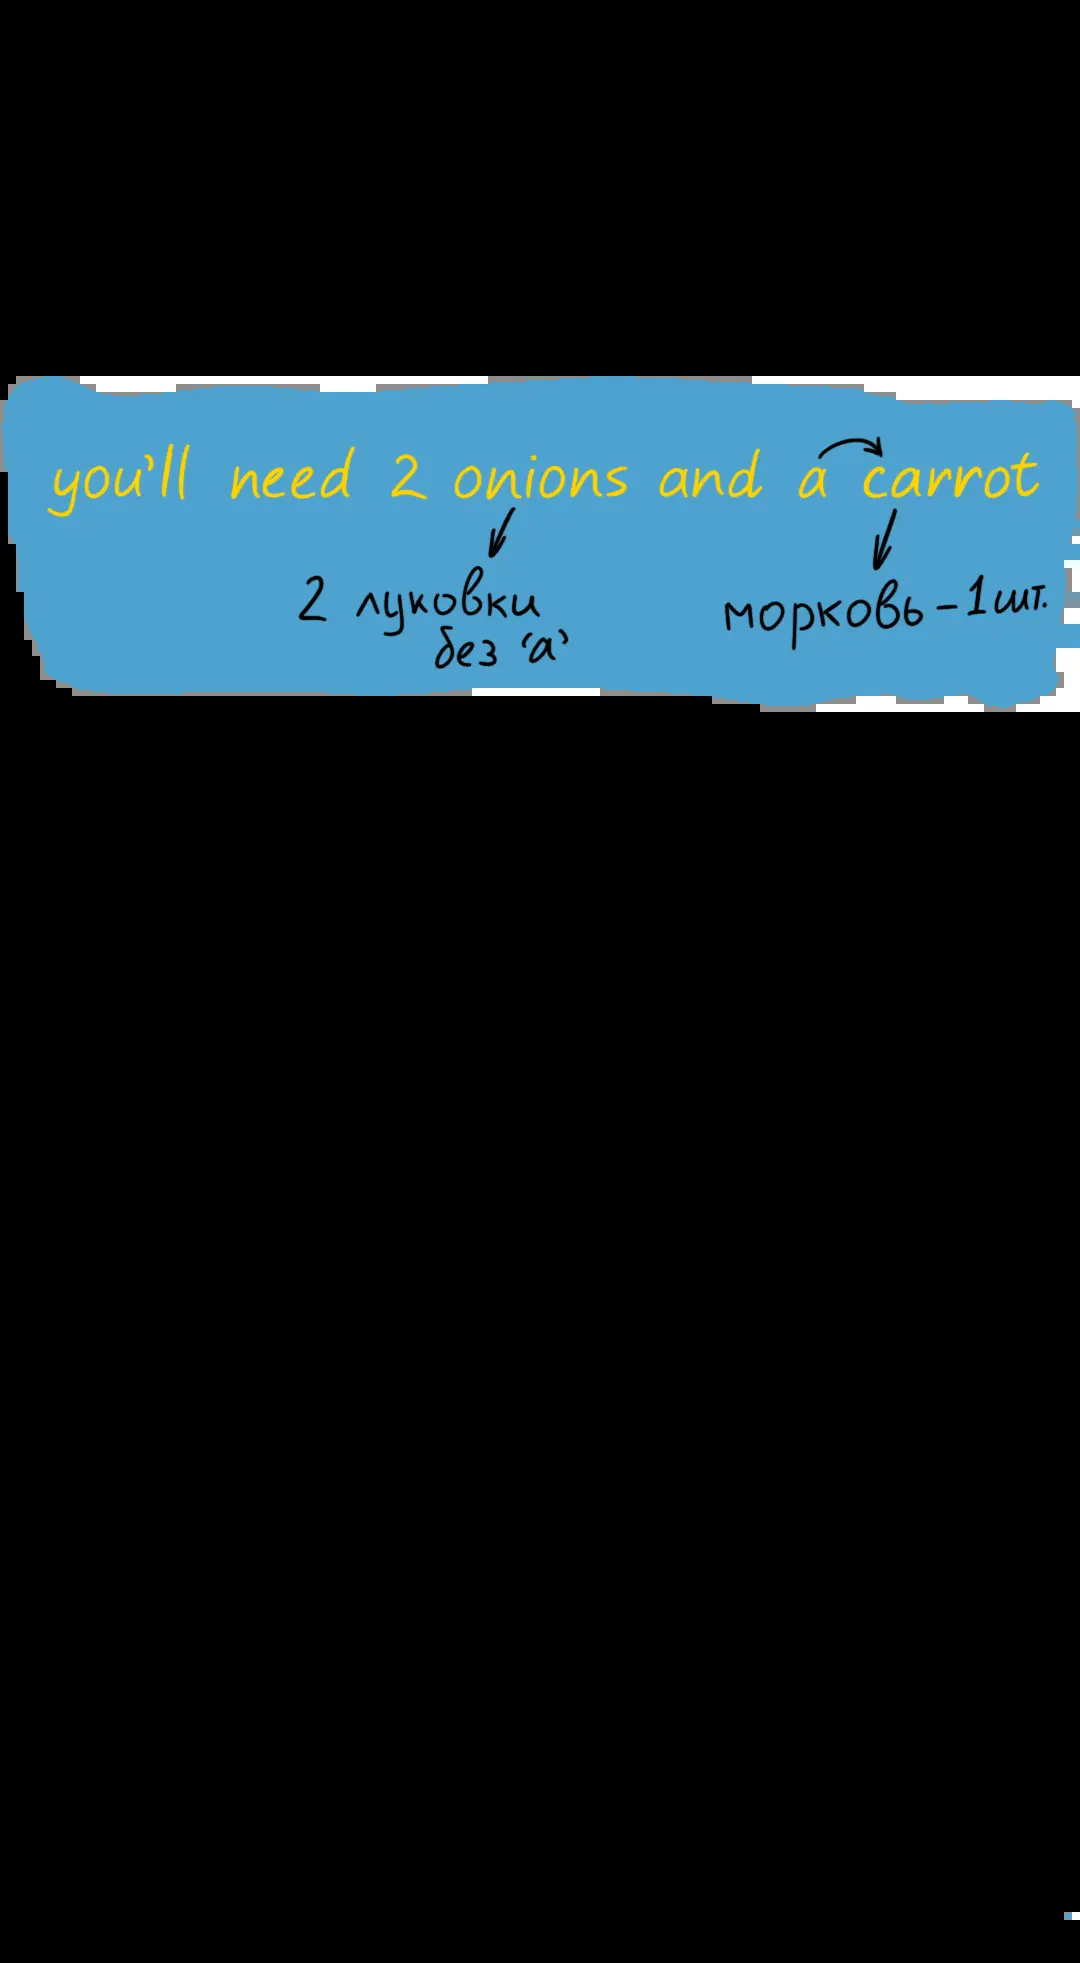 you'll need 2 onions and a carrot
2 луковки
без 'а'
морковь - 1 шт.